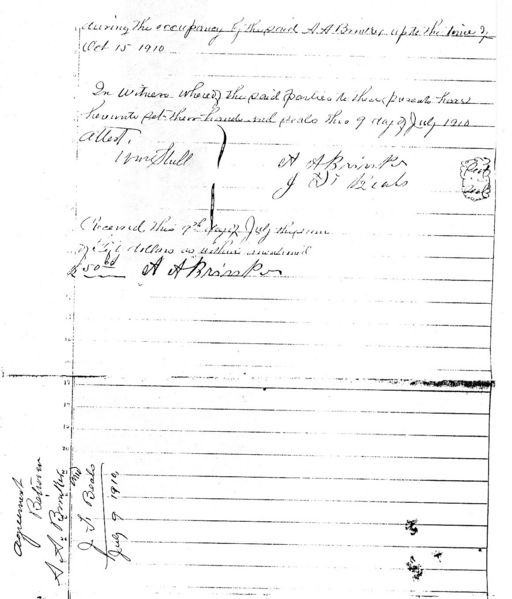 during the occupancy of the said A A Brinker up to the time of
Oct 15 1910
In witness whereof the said parties to these presents have
hereunto set their hands and seals this 9 day of July 1910
Attest.
Wm Stull
A A Brinker
J F Beals
Received this 9th day of July the sum
of dollars as within
$50 A A Brinker
Agreement
Between
A A Brinker
and
J F Beals
July 9 1910